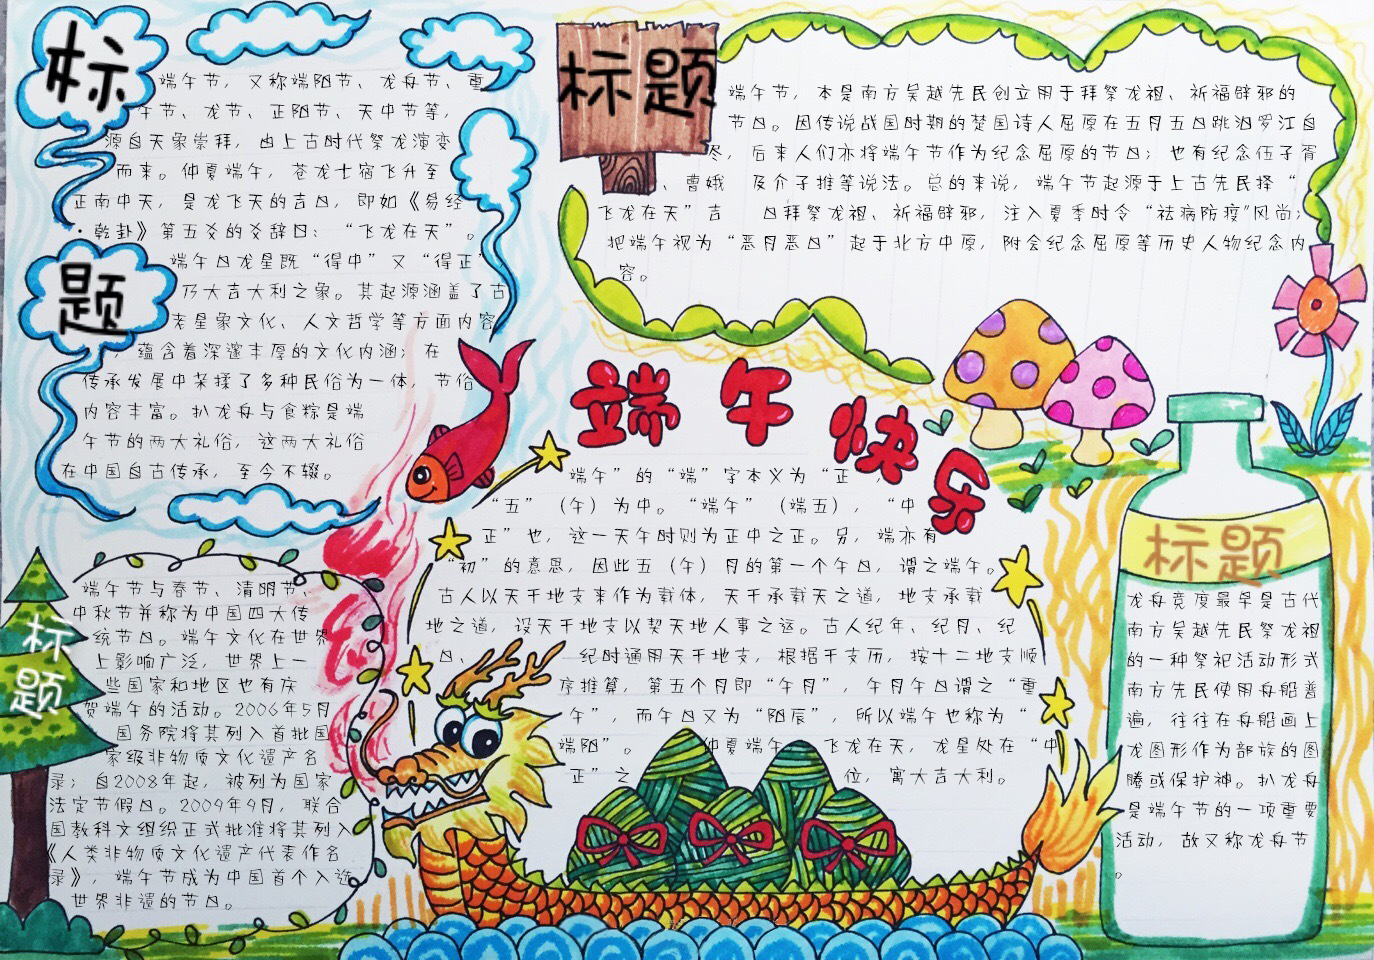 标
题
端午节，又称端阳节、龙舟节、重
午节、龙节、正阳节、天中节等，
源自天象崇拜，由上古时代祭龙演变
而来。仲夏端午，苍龙七宿飞升至
正南中天，是龙飞天的吉日，即如《易经
·乾卦》第五爻的爻辞曰：“飞龙在天”。
端午日龙星既“得中”又“得正”
乃大吉大利之象。其起源涵盖了古
老星象文化、人文哲学等方面内容
，蕴含着深邃丰厚的文化内涵；在
传承发展中杂揉了多种民俗为一体，节俗
内容丰富。扒龙舟与食粽是端
午节的两大礼俗，这两大礼俗
在中国自古传承，至今不辍。
标题
端午节，本是南方吴越先民创立用于拜祭龙祖、祈福辟邪的
节日。因传说战国时期的楚国诗人屈原在五月五日跳汨罗江自
尽，后来人们亦将端午节作为纪念屈原的节日；也有纪念伍子胥
、曹娥 及介子推等说法。总的来说，端午节起源于上古先民择“
飞龙在天”吉 日拜祭龙祖、祈福辟邪，注入夏季时令“祛病防疫”风尚；
把端午视为“恶月恶日”起于北方中原，附会纪念屈原等历史人物纪念内
容。
端午快乐
端午”的“端”字本义为“正，
“五”（午）为中。“端午”（端五），“中
正”也，这一天午时则为正中之正。另，端亦有
“初”的意思，因此五（午）月的第一个午日，谓之端午。
古人以天干地支来作为载体，天干承载天之道，地支承载
地之道，设天干地支以契天地人事之运。古人纪年、纪月、纪
日、 纪时通用天干地支，根据干支历，按十二地支顺
序推算，第五个月即“午月”，午月午日谓之“重
午”，而午日又为“阳辰”，所以端午也称为“
端阳”。 仲夏端午 飞龙在天，龙星处在“中
正”之 位，寓大吉大利。
标
题
端午节与春节、清明节、
中秋节并称为中国四大传
统节日。端午文化在世界
上影响广泛，世界上一
些国家和地区也有庆
贺端午的活动。2006年5月
国务院将其列入首批国
家级非物质文化遗产名
录；自2008年起，被列为国家
法定节假日。2009年9月，联合
国教科文组织正式批准将其列入
《人类非物质文化遗产代表作名
录》，端午节成为中国首个入选
世界非遗的节日。
标题
龙舟竞度最早是古代
南方吴越先民祭龙祖
的一种祭祀活动形式
南方先民使用舟船普
遍，往往在舟船画上
龙图形作为部族的图
腾或保护神。扒龙舟
是端午节的一项重要
活动，故又称龙舟节
。